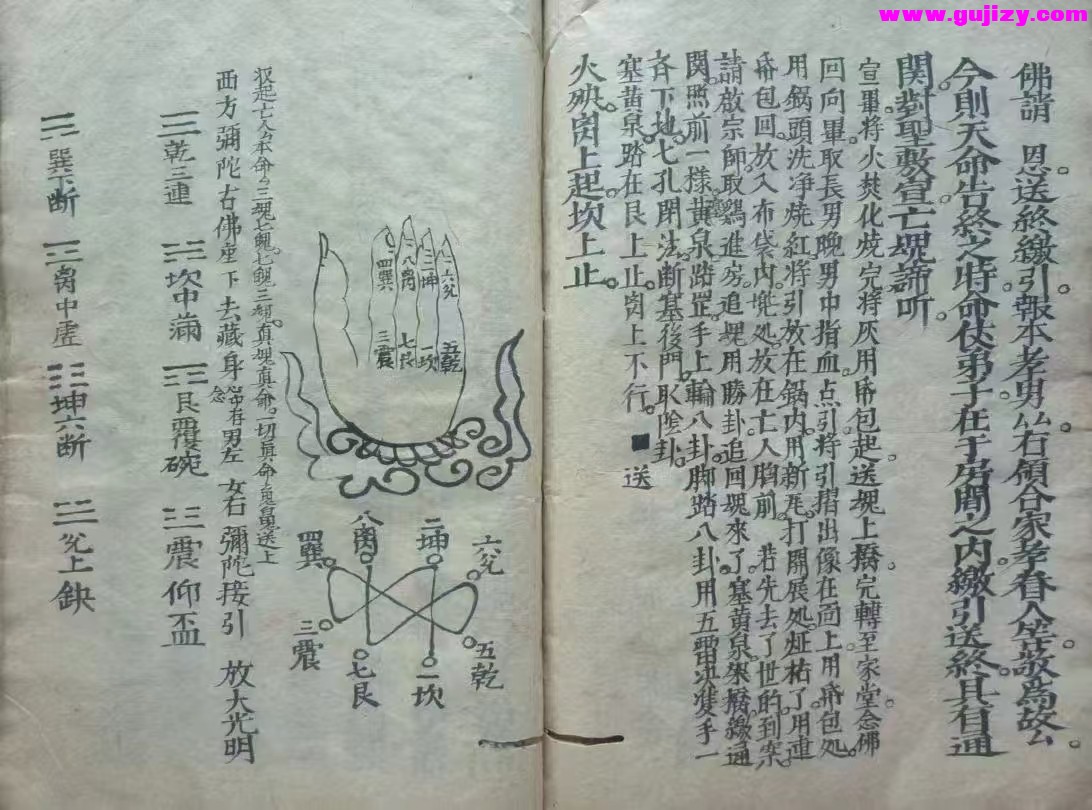 www.gujizy.com
佛請 恩送終繳引。報本孝男厶右領合家孝眷人等。敬爲故厶
今則天命告終之時。命仗弟子在于房間之内。繳引送終。其有通
関。對聖敷宣。亡魂諦听。
宣畢。將火焚化。燒完將灰用帋包起。送魂上橋完。轉至家堂念佛
回向畢。取長男晚男中指血。点引。將引摺出像在面上。用帋包処。
用鍋頭洗净燒紅。將引放在鍋内。用新尾打開展処。用連
帋包回。放入布袋内。兠処。放在亡人胸前。若先去了世的。到案
請啟宗師。取鷄進房。追魂用勝卦。追回魂來了。塞黄泉。架橋。繳通
関。照前一樣。黄泉路罡。手上輪八卦。脚踏八卦。用五雷决。雙手一
斉下地。七孔閉法。断塞後門。取陰卦。
塞黄泉。踏在艮上止。离上不行。 送
火殃离上起。坎上止。
收起亡人厶本命。三魂七魄。七魄三魂。真魂真命。一切真命 送上
西方彌陀右佛座下去藏身 念 存男左 女右 彌陀接引 放大光明
四巽
八离
二坤
六兌
三震
七艮
一坎
五乾
八离
二坤
四巽
六兌
三震
七艮
一坎
五乾
☰乾三連 ☵坎中滿 ☶艮覆碗 ☳震仰盃
☴巽下断 ☲离中虚 ☷坤六断 ☱兌上缺